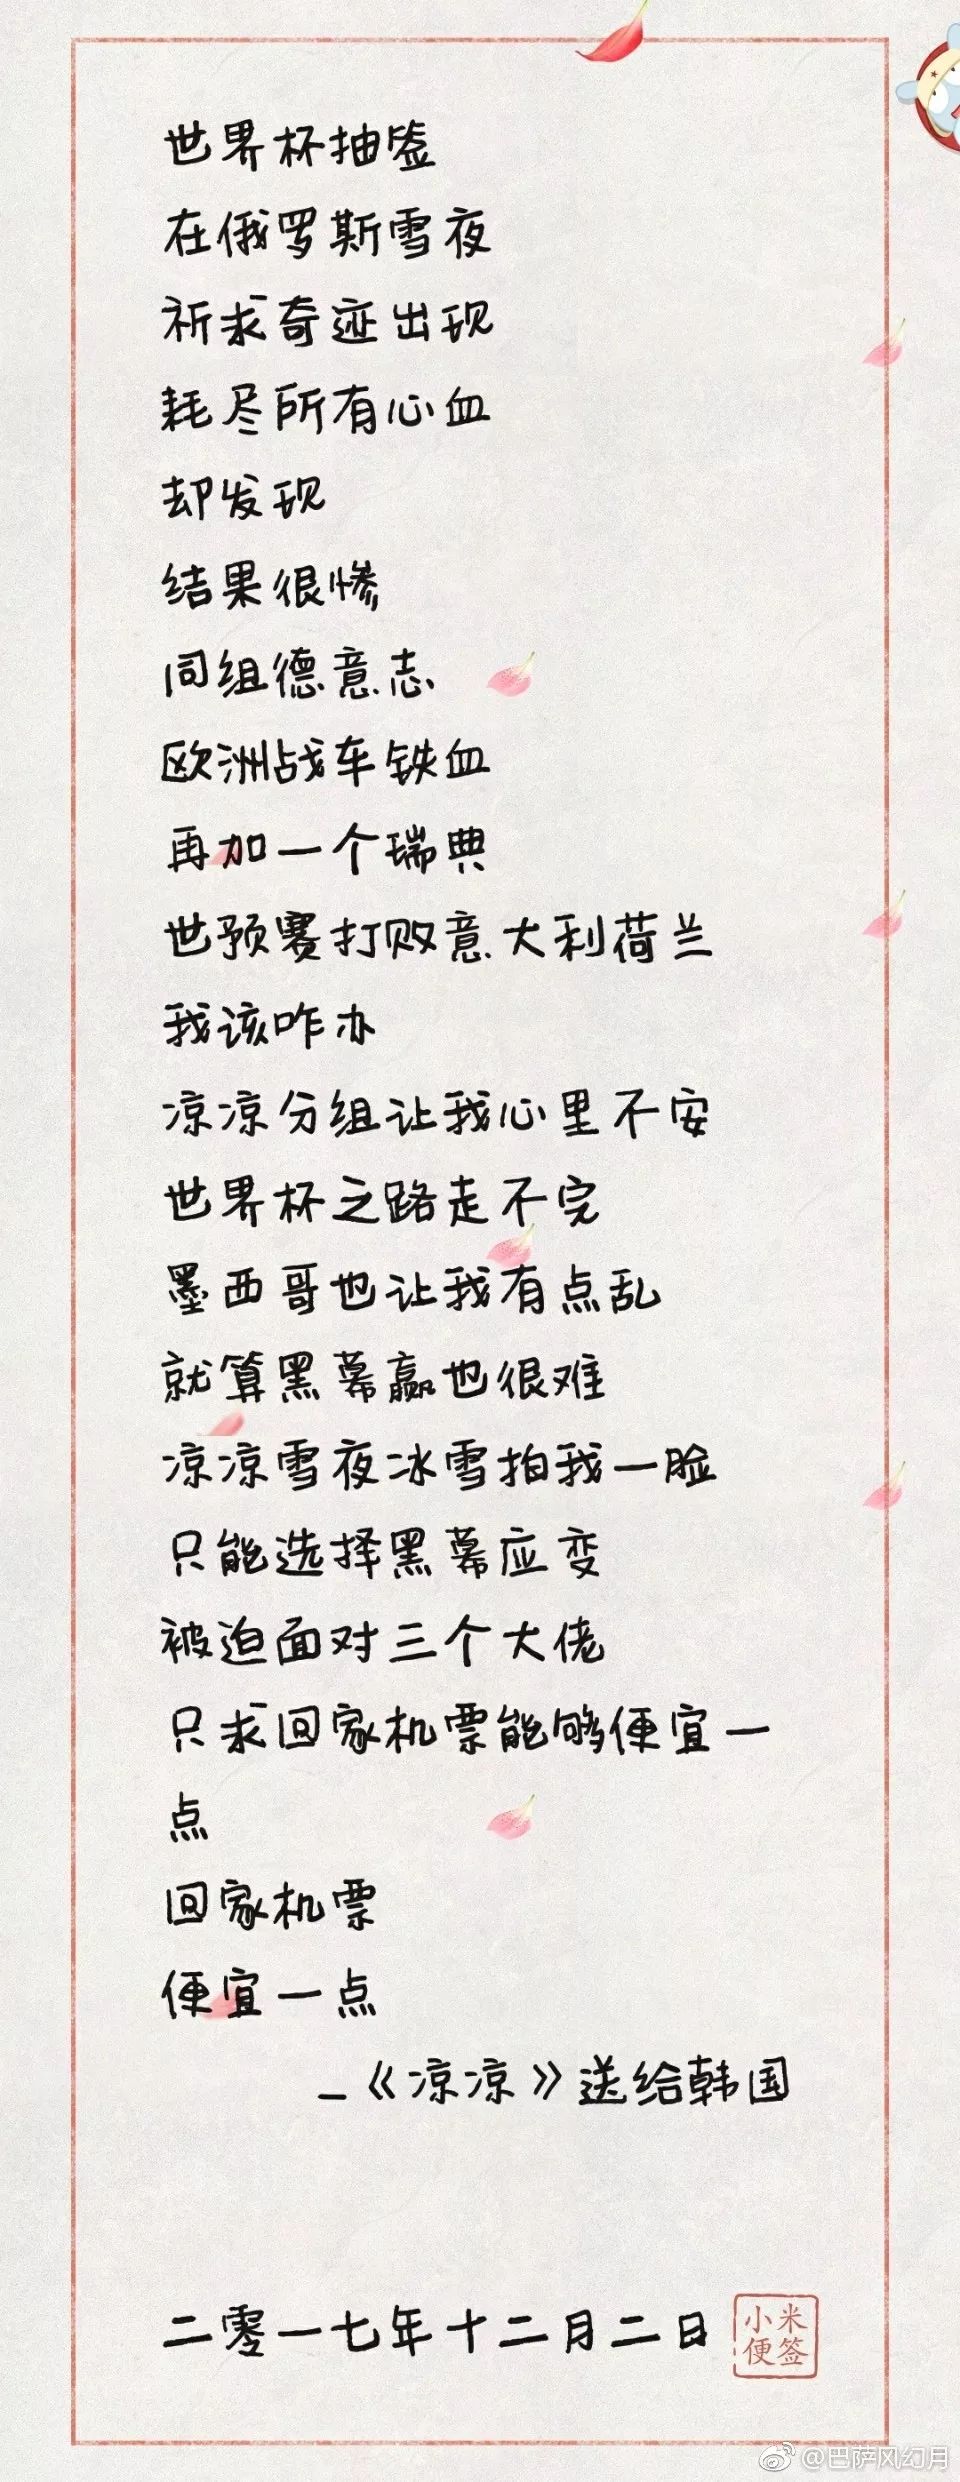 世界杯抽签
在俄罗斯雪夜
祈求奇迹出现
耗尽所有心血
却发现
结果很惨
同组德意志
欧洲战车铁血
再加一个瑞典
世预赛打败意大利荷兰
我该咋办
凉凉分组让我心里不安
世界杯之路走不完
墨西哥也让我有点乱
就算黑幕赢也很难
凉凉雪夜冰雪拍我一脸
只能选择黑幕应变
被迫面对三个大佬
只求回家机票能够便宜一
点
回家机票
便宜一点
–《凉凉》送给韩国
二零一七年十二月二日
小米
便签
@巴萨风幻月